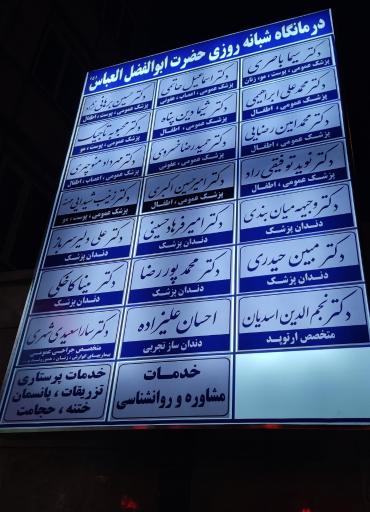 درمانگاه شبانه روزی حضرت ابوالفضل العباس (ع)
دکتر سیما باصری
پزشک عمومی ، پوست ، مو، زنان
دکتر اسماعیل حاتمی
پزشک عمومی ، اعصاب ، عفونی
دکتر حسین برهانی نژاد
پزشک عمومی ، پوست ، اطفال
دکتر محمد علی ابراهیمی
پزشک عمومی ، اطفال
دکتر شیما دین پناه
پزشک عمومی ، اطفال
دکتر محبوبه تاجیک
پزشک عمومی ، پوست ، مو
دکتر محمد امین رضایی
پزشک عمومی ، اطفال
دکتر حمید رضا خسروی
پزشک عمومی ، عفونی
دکتر مهرداد منوچهری
پزشک عمومی ، اعصاب ، اطفال
دکتر نوید توفیقی راد
پزشک عمومی ، اطفال
دکتر امیرحسین اکبری
پزشک عمومی ، اطفال
دکتر
پزشک عمومی ، پوست ، مو
دکتر وجیهه میان بندی
دندان پزشک
دکتر امیر فرهاد حسینی
دندان پزشک
دکتر علی دلیر سرباز
دندان پزشک
دکتر مبین حیدری
دندان پزشک
دکتر محمد پور رضا
دندان پزشک
دکتر مینا کاخکی
دندان پزشک
دکتر نجم الدین اسدیان
متخصص ارتوپد
احسان علیزاده
دندان ساز تجربی
دکتر سارا سعیدی
متخصص جراحی عمومی
خدمات
مشاوره و روانشناسی
خدمات پرستاری
تزریقات ، پانسمان
ختنه ، حجامت